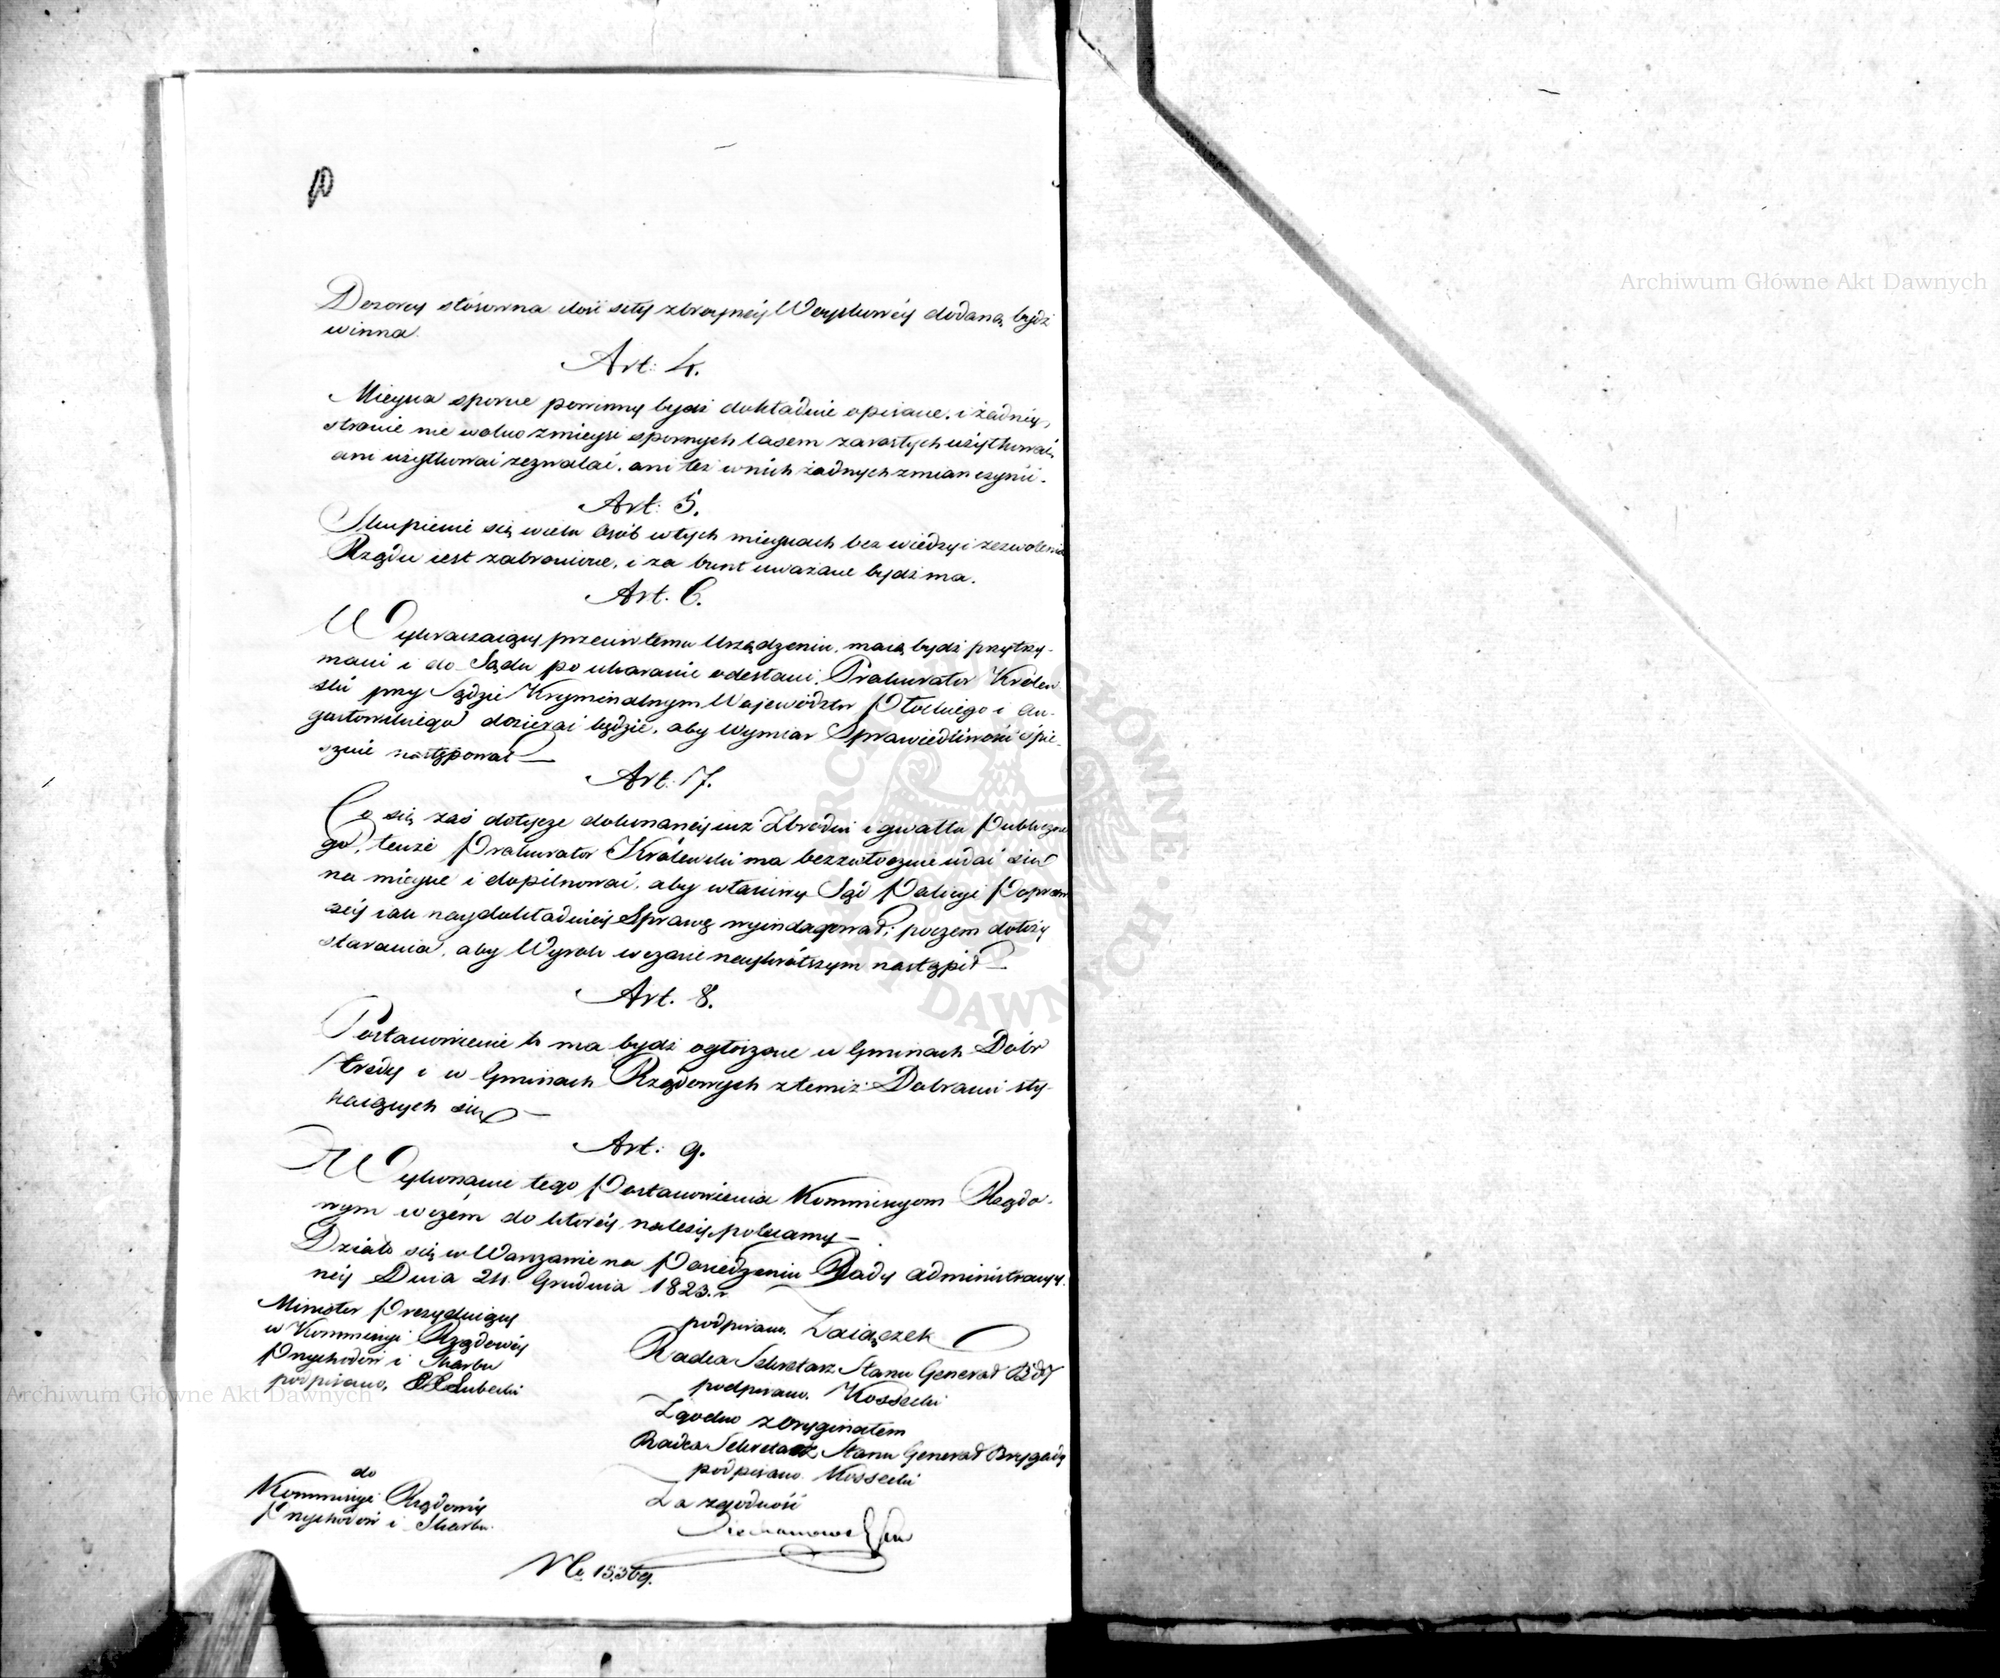 Dozorcy stósowna ilość siły zbroyney Woyskowey dodaną bydź
winna.
Art: 4.
Mieysca sporne powinny bydź dokładnie opisane, i żadney
stronie nie wolno z mieysc spornych lasem zarosłych użytkować,
ani użytkować zezwalać, ani też w nich żadnych zmian czynić.
Art: 5.
Skupienie się wielu Osób w tych mieyscach bez wiedzy i zezwolenia
Rządu iest zabronione, i za bunt uważane bydź ma.
Art. 6.
Wykraczaiący przeciw temu Urządzeniu, maią bydź przytrzy-
mani i do Sądu po ukaranie odesłani, Prokurator Królew
ski przy Sądzie Kryminalnym Województw Płockiego i Au-
gustowskiego dozierać będzie, aby Wymiar Sprawiedliwości śpie-
sznie następował
Art. 7.
Co się zaś dotycze dokonaney iuż Zbrodni i gwałtu Publiczne
go, tenże Prokurator Królewski ma bezzwłocznie udać się
na mieysce i dopilnować, aby własciwy Sąd Policyi Popraw
czey iak naydokładniey Sprawę wyindagował; poczem dołoży
starania, aby Wyrok w czasie naykrótszym nastąpił
Art. 8.
Postanowienie to ma bydź ogłoszone w Gminach Dóbr
i w Gminach Rządowych z temiż Dobrami sty-
kaiących się
Art: 9.
Wykonanie tego Postanowienia Kommissyom Rządo-
wym w czém do którey należy, polecamy
Działo się w Warszawie na Posiedzeniu Rady Administracyy-
ney Dnia 24. Grudnia 1823. r.
Minister Prezyduiący
w Kommissyi Rządowey
Przychodów i Skarbu
podpisano, Lubecki
podpisano, Zaiączek
Radca Sekretarz Stanu Generał Bdy
podpisano. Kossecki
Zgodno z Oryginałem
Radca Sekretarz Stanu Generał Brygady
podpisano Kossecki
Za zgodność
do
Kommissyi Rządowey
Przychodów i Skarbu.
No 15369.
Archiwum Główne Akt Dawnych
Archiwum Główne Akt Dawnych